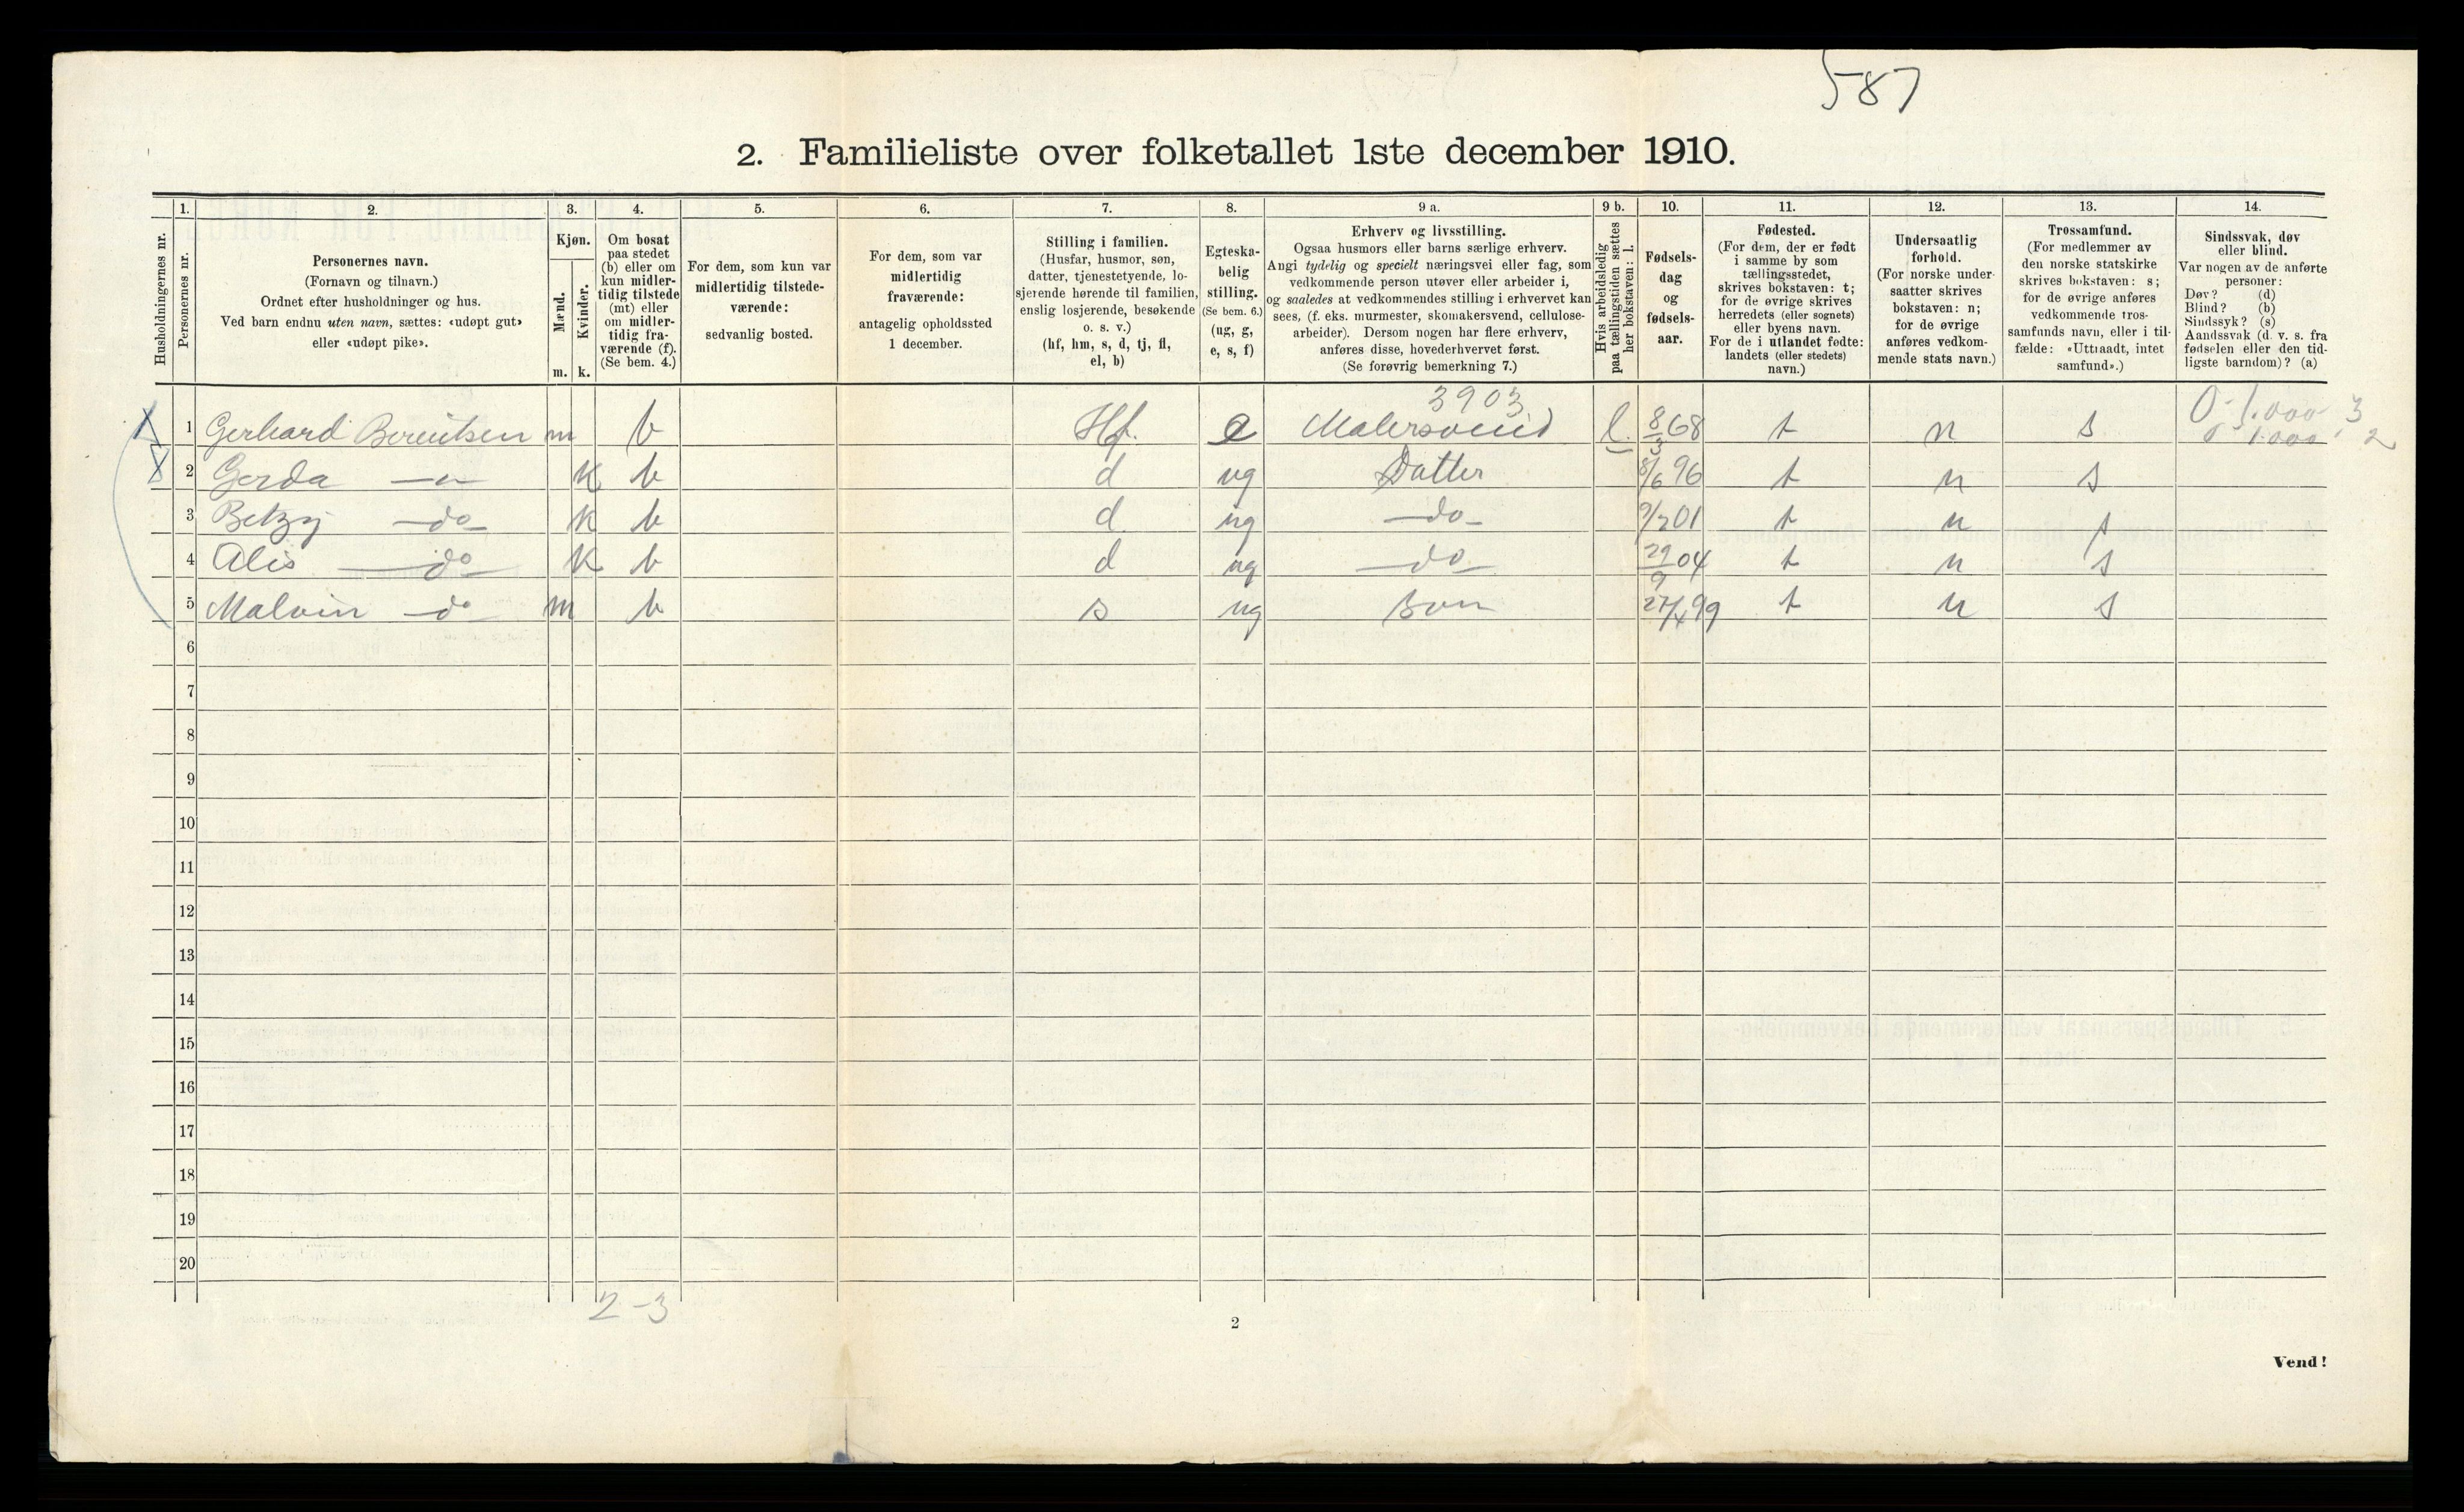 587
2. Familieliste over folketallet 1ste december 1910.
Husholdningernes nr.
1. Personernes nr.
2. Personernes navn.
(Fornavn og tilnavn.)
Ordnet efter husholdninger og hus.
Ved barn endnu uten navn, sættes: «udøpt gut»
eller «udøpt pike».
3. Kjøn.
Mænd. m.
Kvinder. k.
4. Om bosat
paa stedet
(b) eller om
kun midler-
tidig tilstede
(mt) eller
om midler-
tidig fra-
værende (f).
(Se bem. 4.)
5. For dem, som kun var
midlertidig tilstede-
værende:
sedvanlig bosted.
6. For dem, som var
midlertidig
fraværende:
antagelig opholdssted
1 december.
7. Stilling i familien.
(Husfar, husmor, søn,
datter, tjenestetyende, lo-
sjerende hørende til familien,
enslig losjerende, besøkende
o. s. v.)
(hf, hm, s, d, tj, fl,
el, b)
8. Egteska-
belig
stilling.
(Se bem. 6.)
(ug, g,
e, s, f)
9 a. Erhverv og livsstilling.
Ogsaa husmors eller barns særlige erhverv.
Angi tydelig og specielt næringsvei eller fag, som
vedkommende person utøver eller arbeider i,
og saaledes at vedkommendes stilling i erhvervet kan
sees, (f. eks. murmester, skomakersvend, cellulose-
arbeider). Dersom nogen har flere erhverv,
anføres disse, hovederhvervet først.
(Se forøvrig bemerkning 7.)
9 b. Hvis arbeidsledig
paa tællingstiden sættes
her bokstaven: l.
10. Fødsels-
dag
og
fødsels-
aar.
11. Fødested.
(For dem, der er født
i samme by som
tællingsstedet,
skrives bokstaven: t;
for de øvrige skrives
herredets (eller sognets)
eller byens navn.
For de i utlandet fødte:
landets (eller stedets)
navn.)
12. Undersaatlig
forhold.
(For norske under-
saatter skrives
bokstaven: n;
for de øvrige
anføres vedkom-
mende stats navn.)
13. Trossamfund.
(For medlemmer av
den norske statskirke
skrives bokstaven: s;
for de øvrige anføres
vedkommende tros-
samfunds navn, eller i til-
fælde: «Uttraadt, intet
samfund».)
14. Sindssvak, døv
eller blind.
Var nogen av de anførte
personer:
Døv? (d)
Blind? (b)
Sindssyk? (s)
Aandssvak (d. v. s. fra
fødselen eller den tid-
ligste barndom)? (a)
3903
0-1.000-3
0 1.000. 2
1 Gerhard Berentsen m b Hf. e Malersvend l. 8/3 68 t n s
2 Gerda —"— k b d ug Datter 8/6 96 t n s
3 Betzy —do— k b d ug —do— 9/2 01 t n s
4 Alis —do— k b d ug —do— 29/9 04 t n s
5 Malvin —do— m b s ug Søn 27/4 99 t n s
6
7
8
9
10
11
12
13
14
15
16
17
18
19
20
2-3
2
Vend!